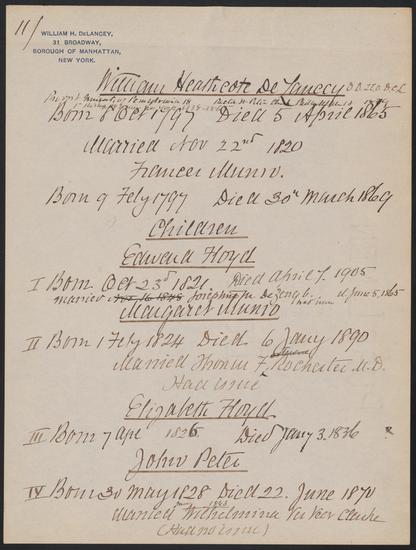 11/
WILLIAM H. DeLANCEY,
31 BROADWAY,
BOROUGH OF MANHATTAN,
NEW YORK.
William Heathcote De Lancey D.D. LL.D. D.C.L
Provost University of Pennsylvania 18
Born 8 Oct 1797 Died 5 April 1865
Married Nov 22nd 1820
Frances Munro.
Born 9 Feby 1797 Died 30th March 1869
Children
Edward Floyd
I Born Oct 23d 1821 Died April 7. 1905
married Nov 16 1848 Josephine De Zeng had issue d June 5, 1865
Margaret Munro
II Born 1 Feby 1824 Died 6 Jany 1890
Married Thomas F. Rochester M.D.
Had issue
Elizabeth Floyd
III Born 7 Apl 1826 Died Jany 3. 1836
John Peter
IV Born 30 May 1828 Died 22. June 1870
Married Wilhelmina Ver Veer Clarke
(Had issue)